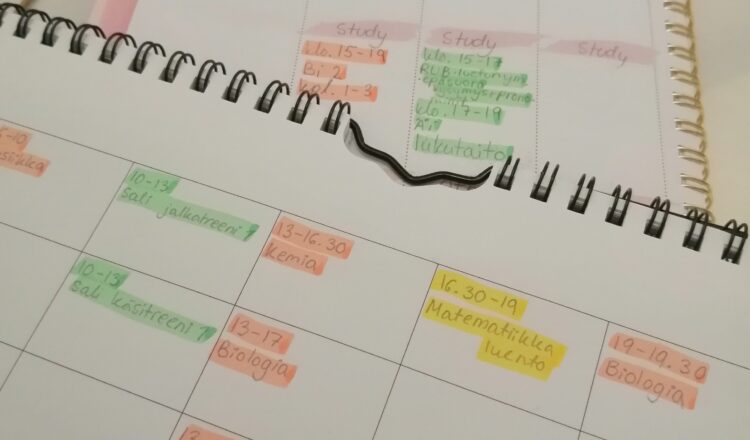 Study
klo. 15-19
Bi 2
kpl. 1-3
Study
klo. 15-17
klo. 17-19
Äi
lukutaito
Study
10-13
sali jalkatreeni
13-16.30
Kemia
16.30-19
Matematiikka
luento
19-19.30
Biologia
10-13
sali käsitreeni
13-17
Biologia